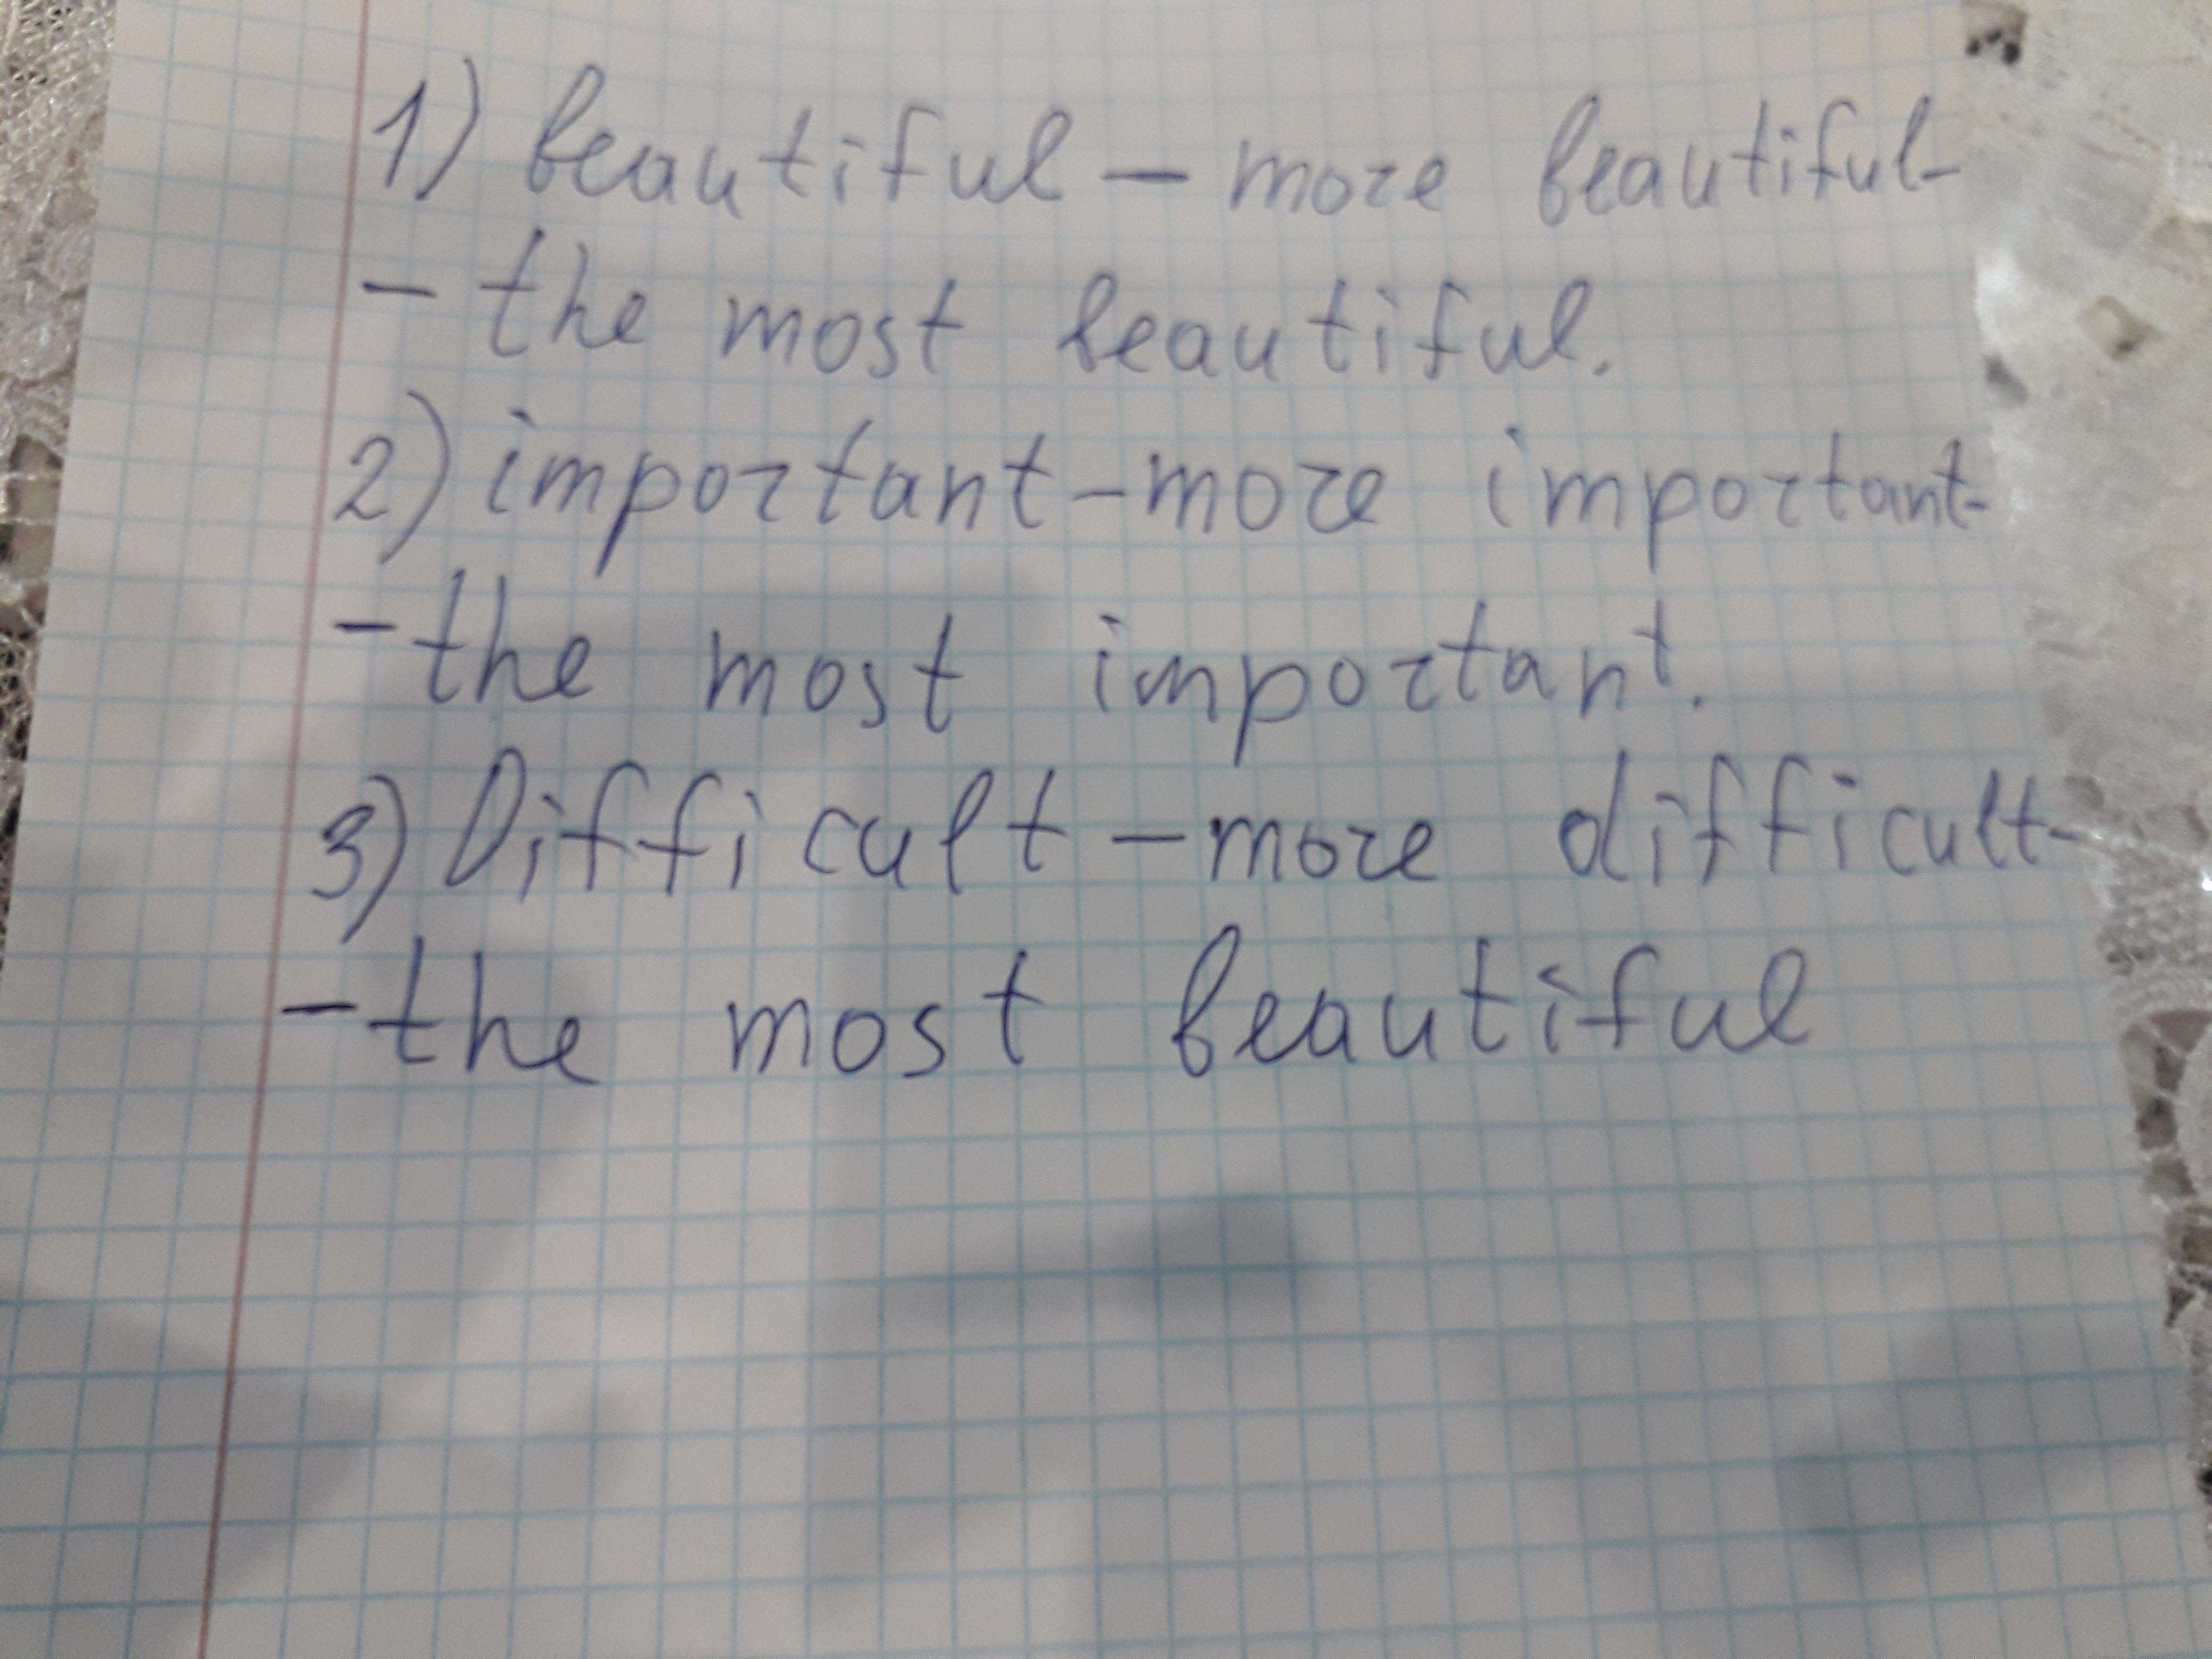 1) beautiful – more beautiful-
- the most beautiful.
2) important - more important-
- the most important.
3) Difficult - more difficult-
- the most beautiful